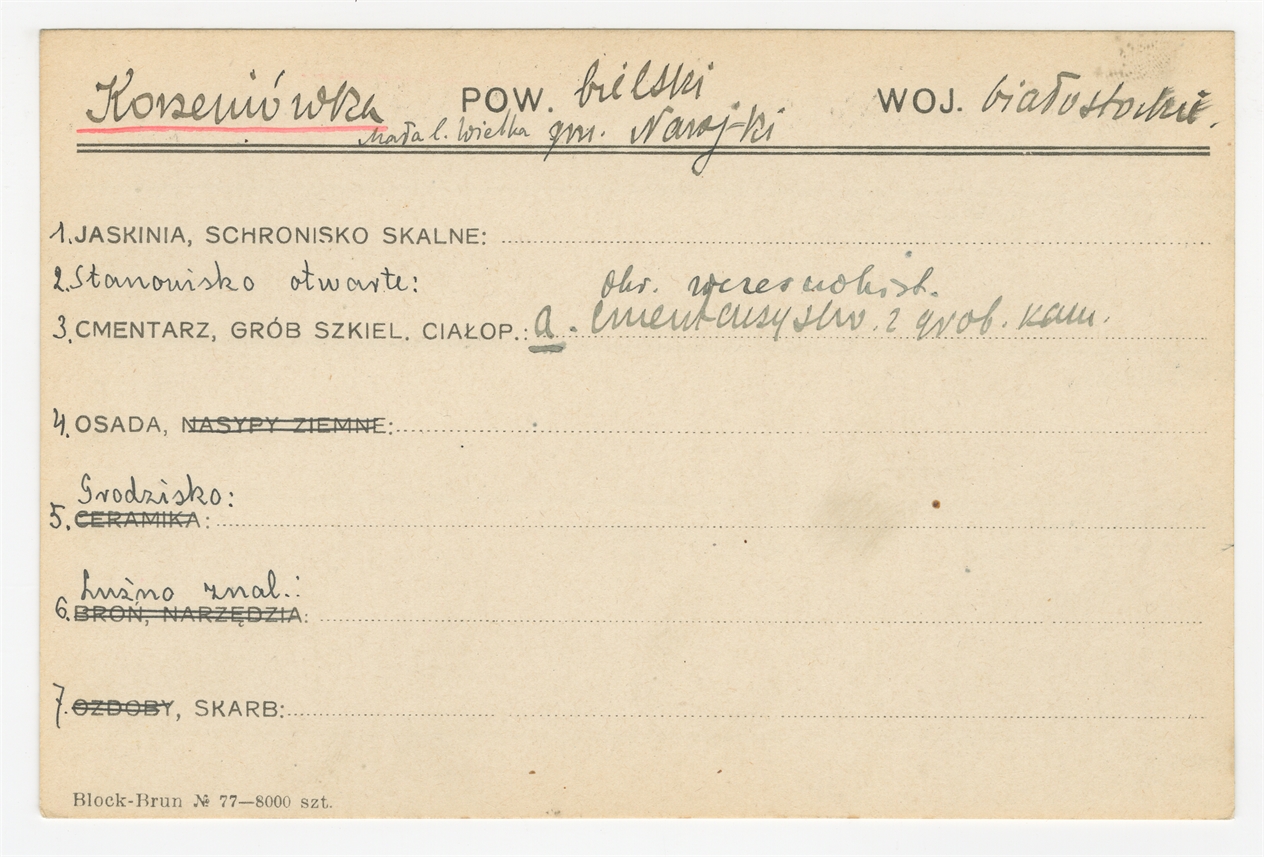 Korzeniówka POW. bielski WOJ. białostockie.
Mała l. Wielka gm. Narojki
1. JASKINIA, SCHRONISKO SKALNE:
2. Stanowisko otwarte: okr. wczesnohist.
3. CMENTARZ, GRÓB SZKIEL. CIAŁOP.: a. cmentarzysko. z grob. kam.
4. OSADA, NASYPY ZIEMNE:
Grodzisko:
5. CERAMIKA:
Luźno znal.:
6. BROŃ, NARZĘDZIA:
7. OZDOBY, SKARB:
Block-Brun № 77—8000 szt.